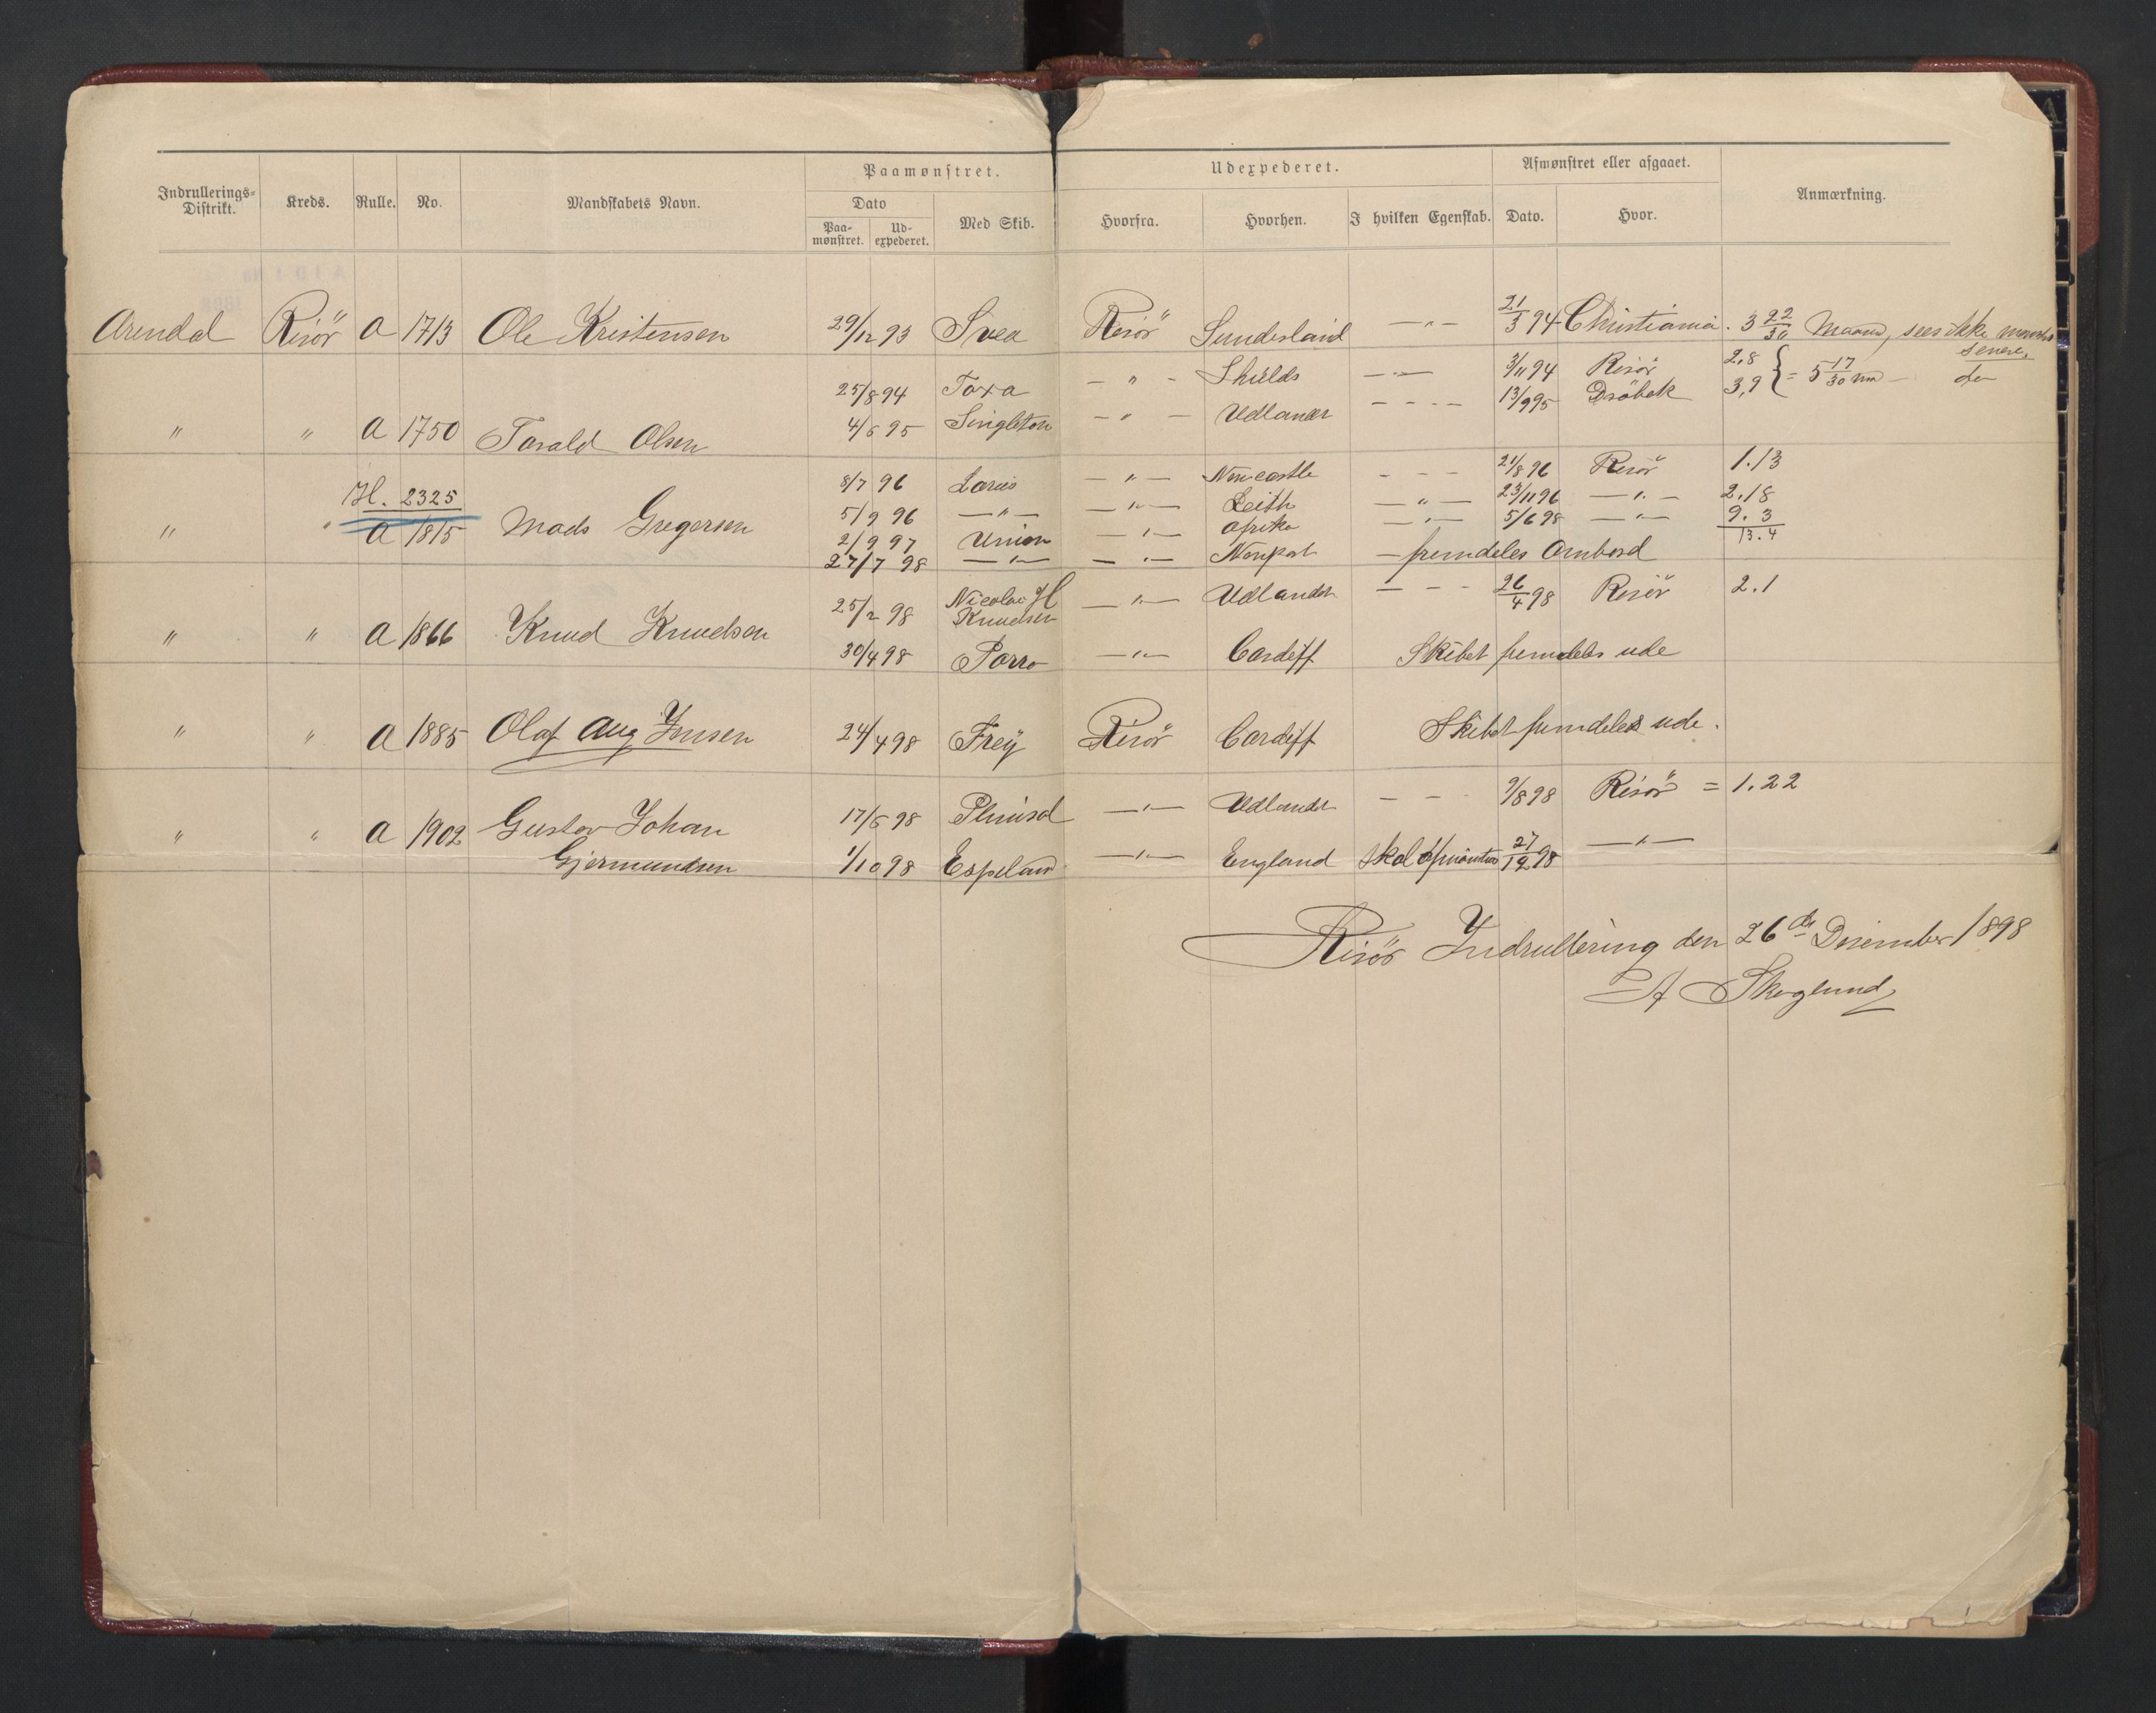 Paamønstret. Udexpederet. Afmønstret eller afgaaet.
Indrullerings-Distrikt. Kreds. Rulle. No. Mandskabets Navn. Dato Med Skib. Hvorfra. Hvorhen. I hvilken Egenskab. Dato. Hvor. Anmærkning.
Paa-mønstret. Ud-expederet.
Arendal Risör A 1713 Ole Kristensen 29/12 93 Svea Risör Sunderland — " — 21/3 94 Christiania. 3 22/30 Maaned, sees ikke
senere.
25/8 94 Toxa — " — Shields — " — 3/11 94 Risör 2,8
" " A 1750 Torald Olsen 4/6 95 Singleton — " — Udlandet - - - - 13/9 95 Dröbak 3,9 } = 5 17/30 
8/7 96 Larus — " — Newcastle - - - 21/8 96 Risör 1.13
H. 2325 5/9 96 — " — — " — Leith — " — 23/11 96 — " — 2.18
" " A 1815 Mads Gregersen 2/9 97 Union — " — Afrika — " — 5/6 98 — " — 9.3
13.4
27/7 98 — " — — " — Newport — fremdeles Ombord
25/2 98 Nicolai H Knudsen — " — Udlandet - - - 26/4 98 Risör 2.1
" " A 1866 Knud Knudsen 30/4 98 — " — Cardiff Skibet fremdeles ude
" " A 1885 Olaf Aug Jensen 24/4 98 Frey Risör Cardiff Skibet fremdeles ude.
" " A 1902 Gustav Johan 17/6 98 — " — Udlandet - - 9/8 98 Risör = 1.22
Gjermundsen 1/10 98 Espeland — " — England skal afmönstres 27/12 98 — " —
Risör Indrullering den 26de Desember 1898
A Skoglund